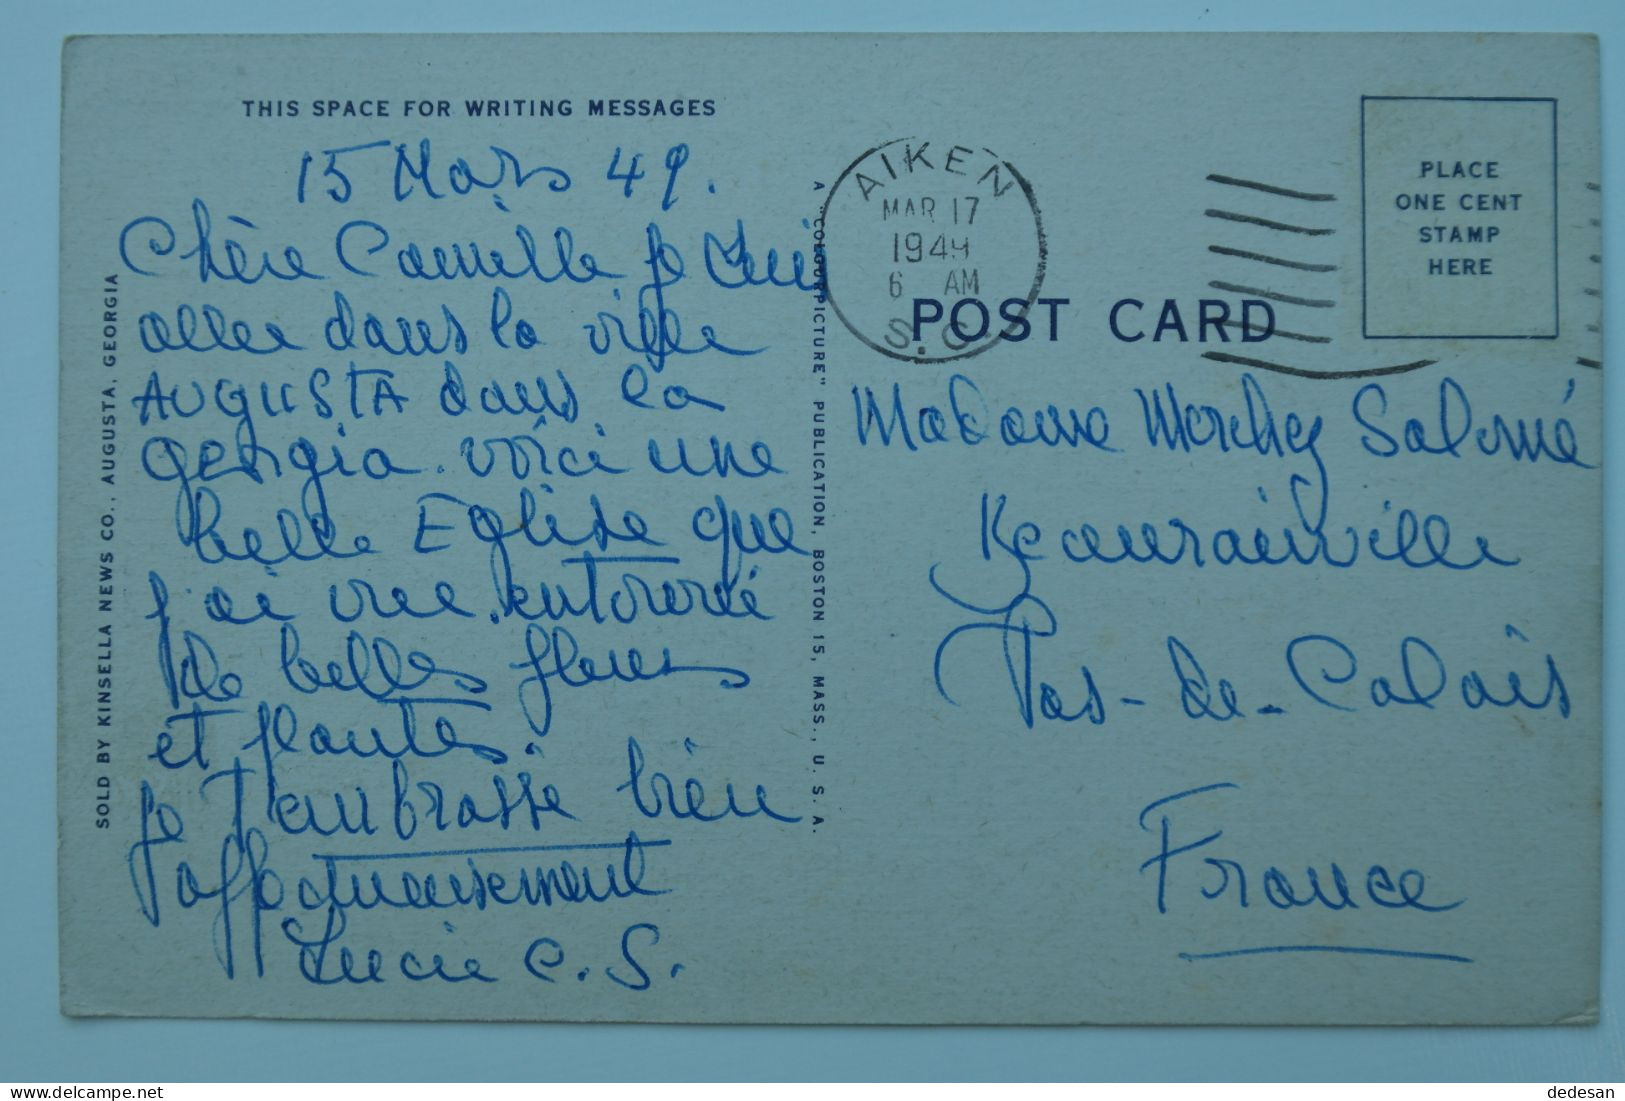 THIS SPACE FOR WRITING MESSAGES
15 Mars 49.
Chère Camille je suis
allée dans la ville
AUGUSTA dans la
georgia. voici une
belle Eglise que
j'ai vue. entourée
de belles fleurs
et plantes.
je t'embrasse bien
affectueusement
Lucie C. S.
SOLD BY KINSELLA NEWS CO., AUGUSTA, GEORGIA
A "COLOURPICTURE" PUBLICATION, BOSTON 15, MASS., U. S. A.
AIKEN
MAR 17
1949
6 AM
S. C.
PLACE
ONE CENT
STAMP
HERE
POST CARD
Madame Salomé
Beaurainville
Pas-de-Calais
France
delcampe.net
dedesan